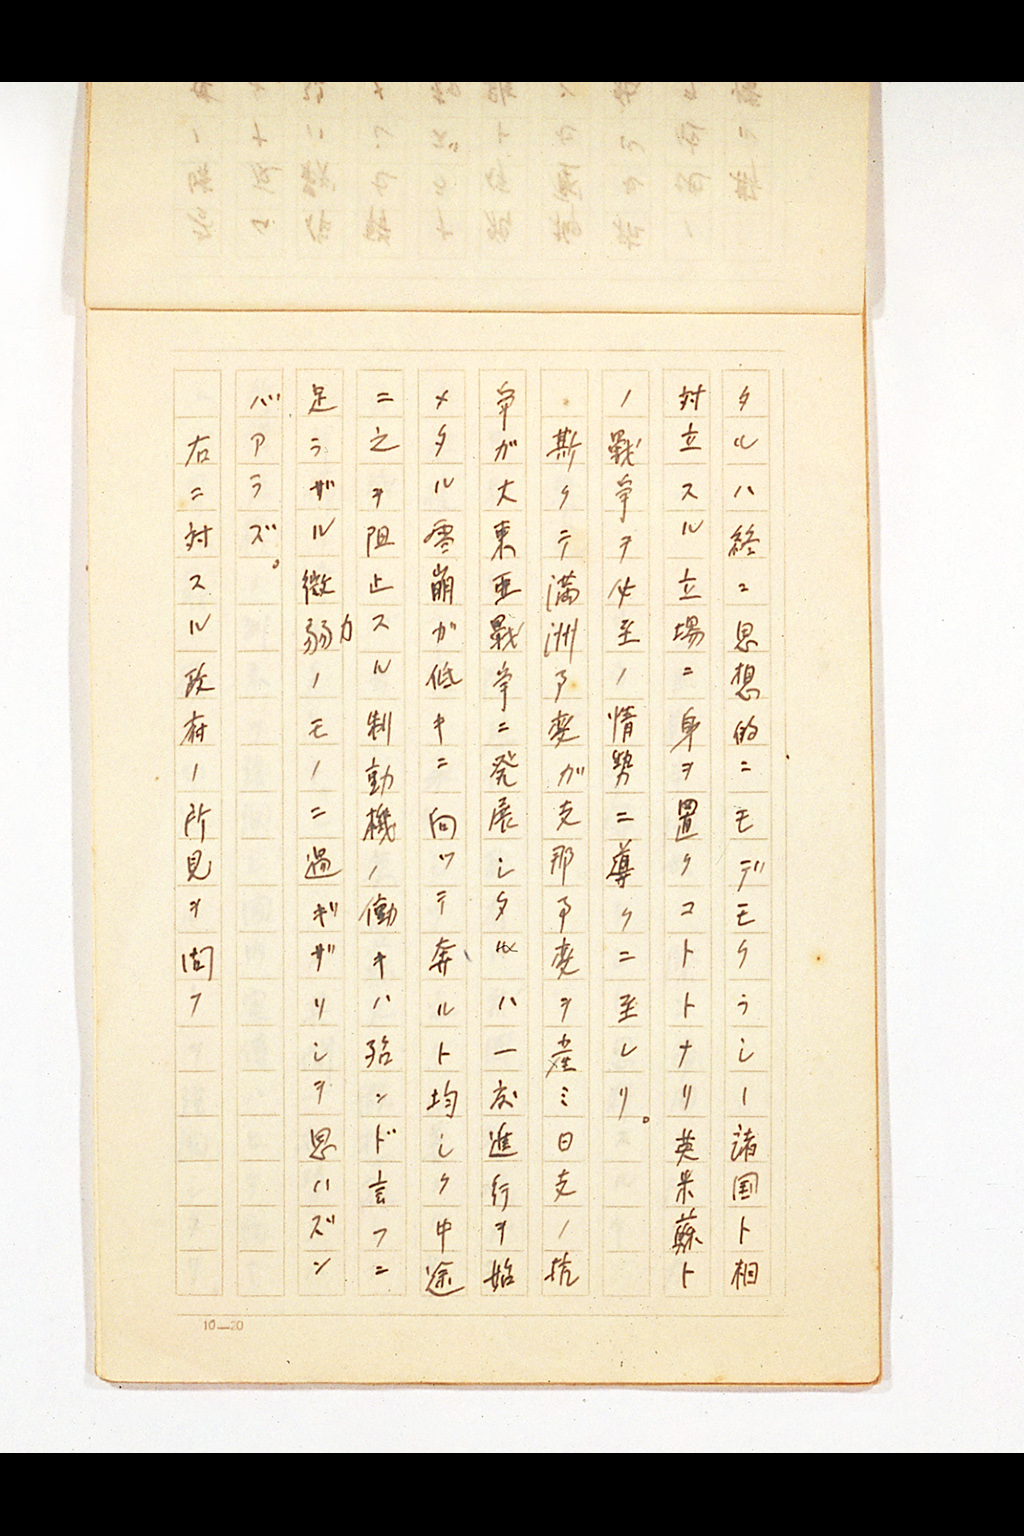 タルハ終ニ思想的ニモデモクラシー諸国ト相
対立スル立場ニ身ヲ置クコトトナリ英米蘇ト
ノ戰争ヲ必至ノ情勢ニ導クニ至レリ。
斯クテ満洲事変ガ支那事変ヲ産ミ日支ノ抗
争ガ大東亜戰争ニ発展シタルハ一度進行ヲ始
メタル雪崩ガ低キニ向ツテ奔ルト均シク中途
ニ之ヲ阻止スル制動機ノ働キハ殆ンド言フニ
足ラザル微弱力ノモノニ過ギザリシヲ思ハズン
バアラズ。
右ニ対スル政府ノ所見ヲ問フ
10—20